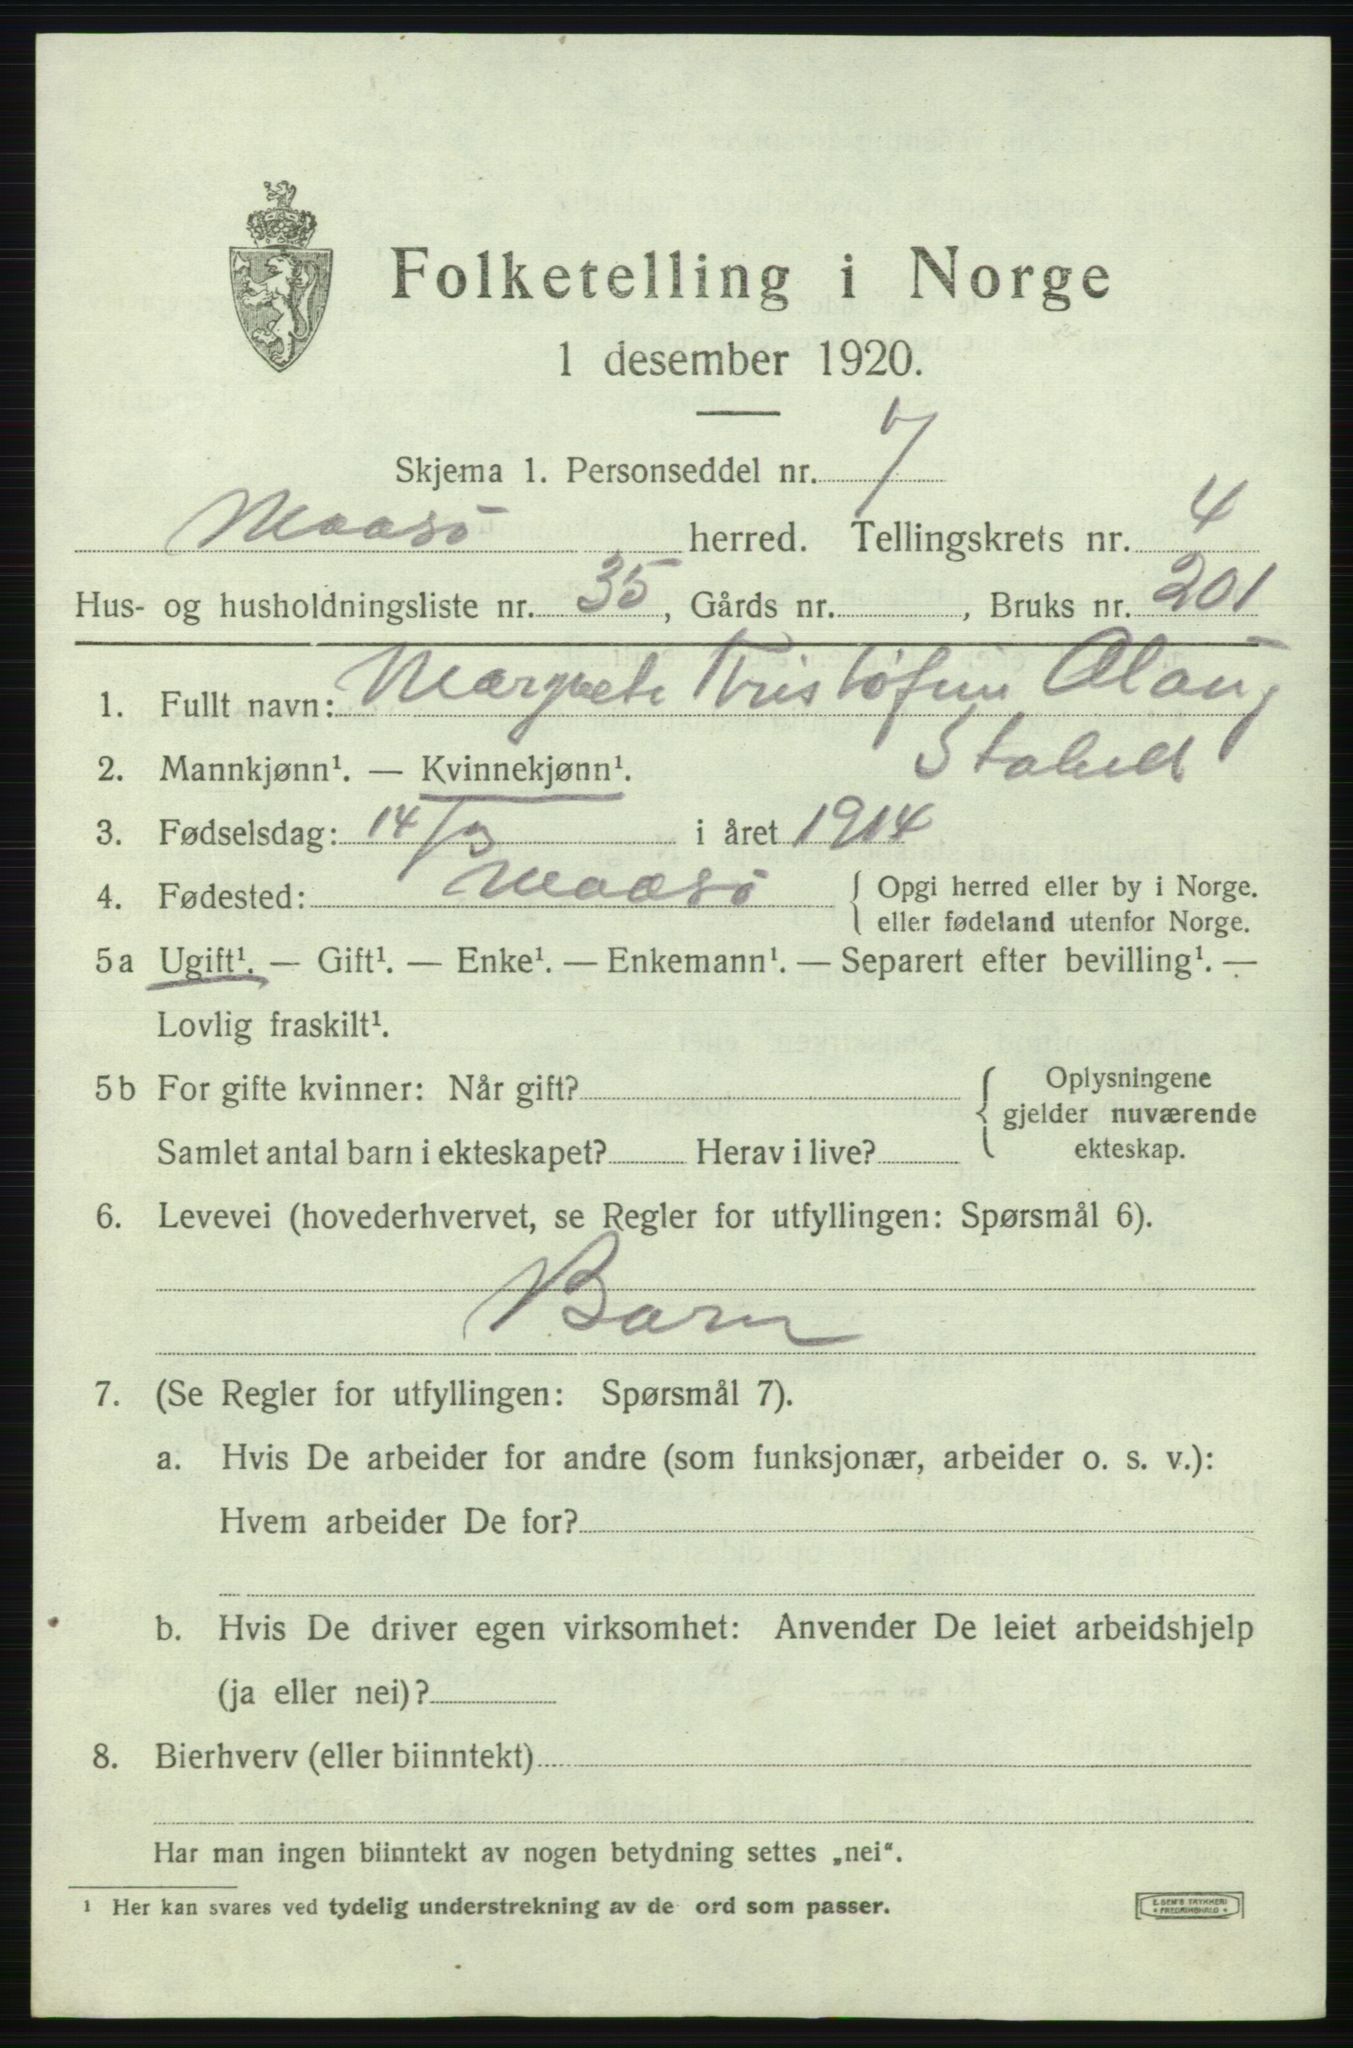 Folketelling i Norge
1 desember 1920.
Skjema 1. Personseddel nr. 7
Maasø herred. Tellingskrets nr. 4
Hus- og husholdningsliste nr. 35, Gårds nr. , Bruks nr. 201
1. Fullt navn: Margrete
2. Mannkjønn¹. — Kvinnekjønn¹.
3. Fødselsdag: 14/3 i året 1914
4. Fødested: Maasø { Opgi herred eller by i Norge.
eller fødeland utenfor Norge.
5a Ugift¹. — Gift¹. — Enke¹. — Enkemann¹. — Separert efter bevilling¹. —
Lovlig fraskilt¹.
5b For gifte kvinner: Når gift? { Oplysningene
gjelder nuværende
ekteskap.
Samlet antal barn i ekteskapet? Herav i live?
6. Levevei (hovederhvervet, se Regler for utfyllingen: Spørsmål 6).
Barn
7. (Se Regler for utfyllingen: Spørsmål 7).
a. Hvis De arbeider for andre (som funksjonær, arbeider o. s. v.):
Hvem arbeider De for?
b. Hvis De driver egen virksomhet: Anvender De leiet arbeidshjelp
(ja eller nei)?
8. Bierhverv (eller biinntekt)
Har man ingen biinntekt av nogen betydning settes „nei“.
¹ Her kan svares ved tydelig understrekning av de ord som passer.
E. SEM'S TRYKKERI
FREDRIKSHALD